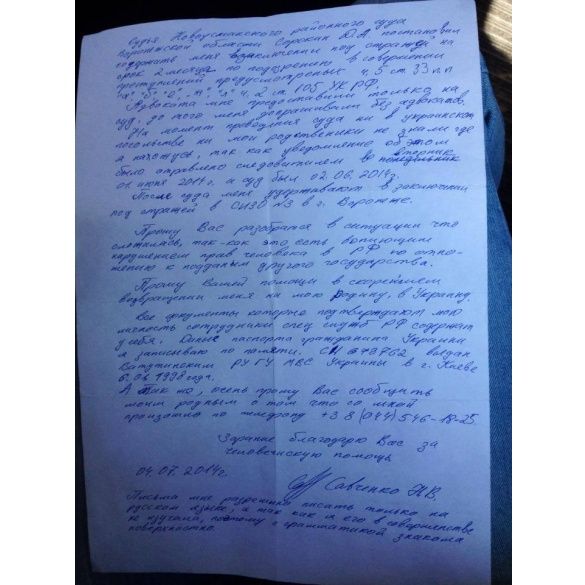 Судья Новоусманского районного суда
Воронежской области Сорокин Ю.А. постановил
поддержать меня заключении под стражей на
срок 2 месяца по подозрению в совершении
преступлений предусмотренных ч. 5 ст 33 п.п
"а" "б" "е" "ж" ч. 2 ст. 105 УК РФ.
Адвоката мне предоставили только на
суд, до того меня допрашивали без адвоката.
На момент проведения суда ни в украинском
посольстве ни мои родственники не знали где
я нахожусь, так как уведомление об этом
было отправлено следователем в понедельник вторник
01 июля 2014г а суд был 02.06.2014г.
После суда меня удерживают в заключении
под стражей в СИЗО №3 в г. Воронеже.
Прошу Вас разобрался в ситуации что
сложилась, так-как это есть вопиющим
нарушением прав человека в РФ по отно-
шению к подданым другого государства.
Прошу Вашей помощи в скорейшем
возвращении меня на мою родину, в Украину.
Все документы которые подтверждают мою
личность сотрудники спец служб РФ содержат
у себя. Даные паспорта гражданина Украина
я записываю по памяти. СН 673762 выдан
Ватутинским РУ ГУ МВС Украины в г. Киеве
6.01 1998 года.
А так же, очень прошу Вас сообщить
моим родным о том что со мной
произошло по телефону +3 8 (044) 546-18-25.
Заранее благодарю Вас за
человеческую помощь
04.07.2014г. Савченко Н.В.
Письма мне разрешено писать только на
русском языке, а так как я его в совершенстве
не изучала, поэтому с грамматикой знакома
поверхностно.